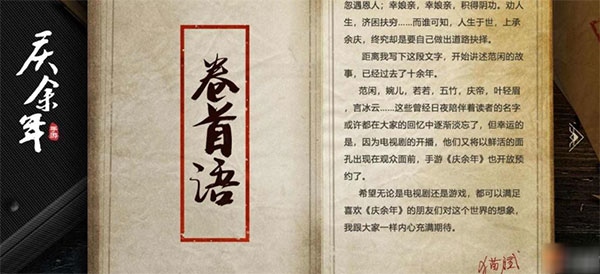 庆余年
手游
卷首语
忽遇恩人；幸娘亲，幸娘亲，积得阴功。劝人
生，济困扶穷……而谁可知，人生于世，上承
余庆，终究却是要自己做出道路抉择。
距离我写下这段文字，开始讲述范闲的故
事，已经过去了十余年。
范闲，婉儿，若若，五竹，庆帝，叶轻眉
，言冰云……这些曾经日夜陪伴着读者的名字
或许都在大家的回忆中逐渐淡忘了，但幸运的
是，因为电视剧的开播，他们又将以鲜活的面
孔出现在观众面前，手游《庆余年》也开放预
约了。
希望无论是电视剧还是游戏，都可以满足
喜欢《庆余年》的朋友们对这个世界的想象，
我跟大家一样内心充满期待。
猫腻